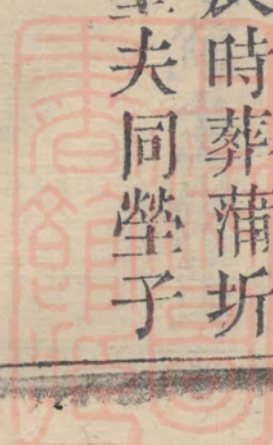 時葬蒲圻
夫同塋子